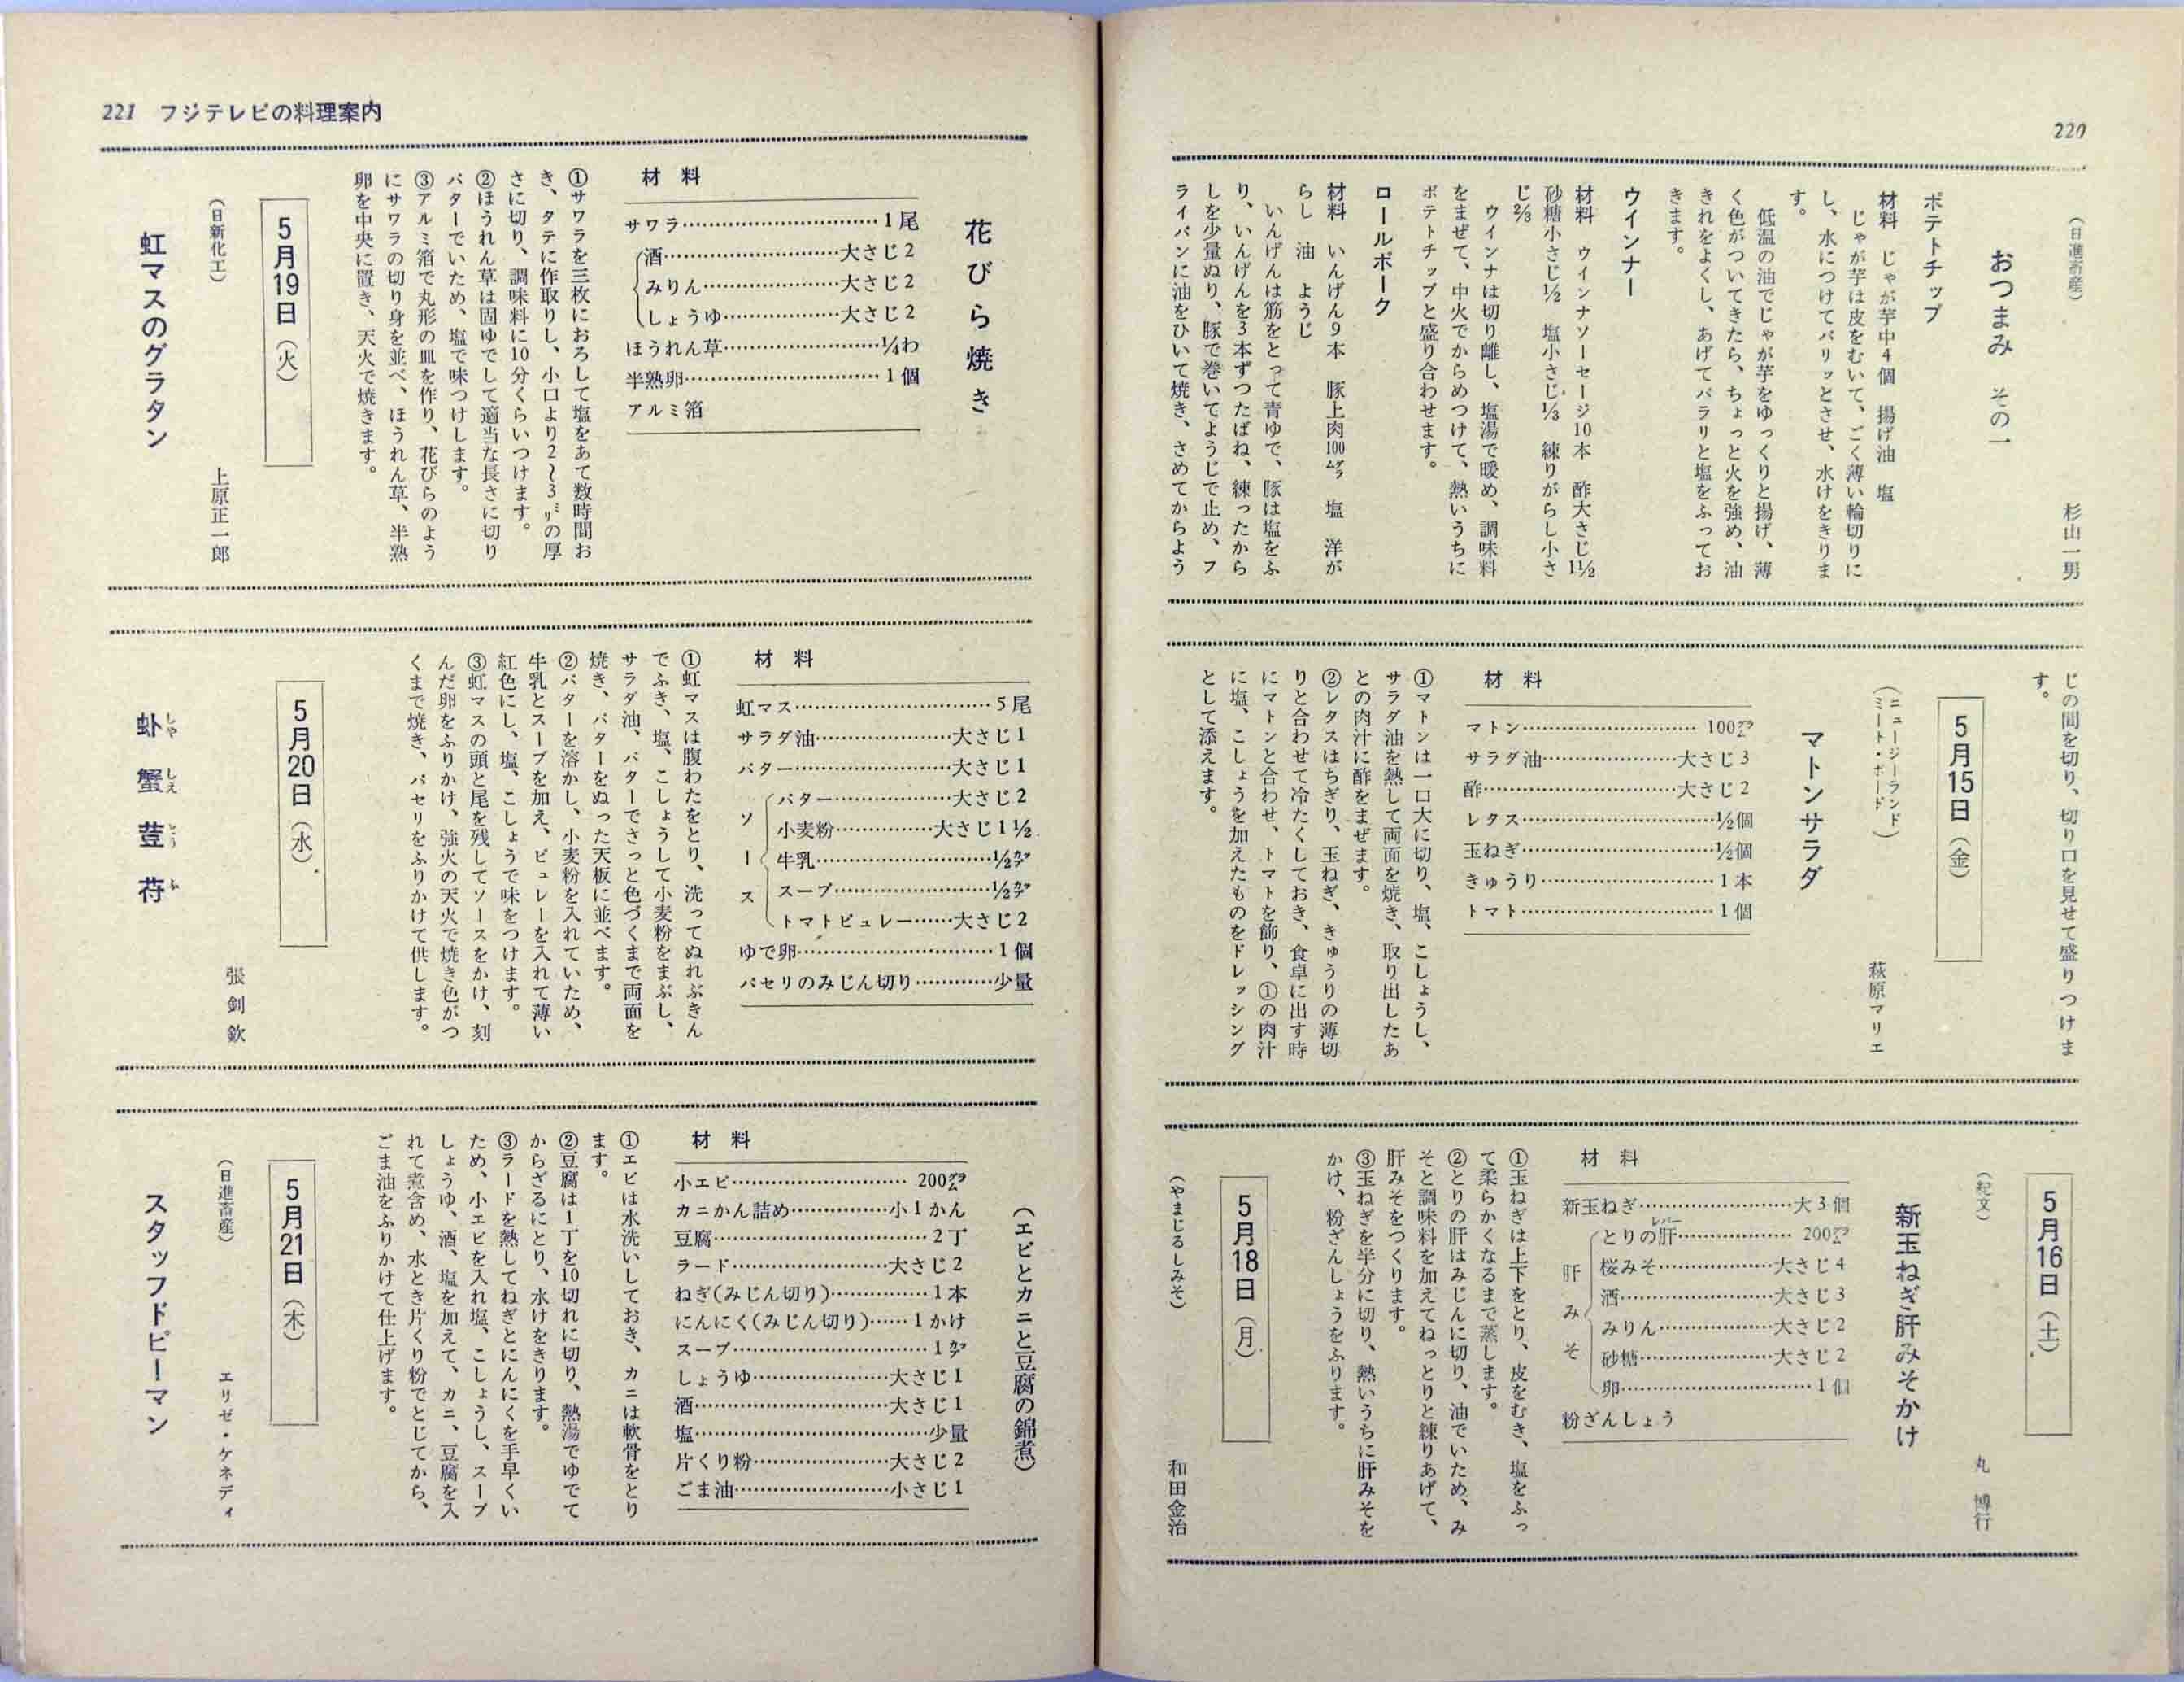 220
(日進畜産)
杉山一男
おつまみ その一
ポテトチップ
材料 じゃが芋中4個 揚げ油 塩
じゃが芋は皮をむいて、ごく薄い輪切りに
し、水につけてパリッとさせ、水けをきりま
す。
低温の油でじゃが芋をゆっくりと揚げ、薄
く色がついてきたら、ちょっと火を強め、油
きれをよくし、あげてパラリと塩をふってお
きます。
ウインナー
材料 ウインナソーセージ10本 酢大さじ1½
砂糖小さじ½ 塩小さじ⅓ 練りがらし小さ
じ⅔
ウインナは切り離し、塩湯で暖め、調味料
をまぜて、中火でからめつけて、熱いうちに
ポテトチップと盛り合わせます。
ロールポーク
材料 いんげん9本 豚上肉100グラム 塩 洋が
らし 油 ようじ
いんげんは筋をとって青ゆで、豚は塩をふ
り、いんげんを3本ずつたばね、練ったから
しを少量ぬり、豚で巻いてようじで止め、フ
ライパンに油をひいて焼き、さめてからよう
じの間を切り、切り口を見せて盛りつけま
す。
5月15日(金)
(ニュージーランド
ミート・ボード)
萩原マリエ
マトンサラダ
材料
マトン……100グラム
サラダ油……大さじ3
酢……大さじ2
レタス……½個
玉ねぎ……½個
きゅうり……1本
トマト……1個
①マトンは一口大に切り、塩、こしょうし、
サラダ油を熱して両面を焼き、取り出したあ
との肉汁に酢をまぜます。
②レタスはちぎり、玉ねぎ、きゅうりの薄切
りと合わせて冷たくしておき、食卓に出す時
にマトンと合わせ、トマトを飾り、①の肉汁
に塩、こしょうを加えたものをドレッシング
として添えます。
5月16日(土)
(紀文)
丸 博行
新玉ねぎ肝みそかけ
材料
新玉ねぎ……大3個
肝みそ
とりの肝(レバー)……200グラム
桜みそ……大さじ4
酒……大さじ3
みりん……大さじ2
砂糖……大さじ2
卵……1個
粉ざんしょう
①玉ねぎは上下をとり、皮をむき、塩をふっ
て柔らかくなるまで蒸します。
②とりの肝はみじんに切り、油でいため、み
そと調味料を加えてねっとりと練りあげて、
肝みそをつくります。
③玉ねぎを半分に切り、熱いうちに肝みそを
かけ、粉ざんしょうをふります。
5月18日(月)
(やまじるしみそ)
和田金治
221 フジテレビの料理案内
花びら焼き
材料
サワラ……1尾
酒……大さじ2
みりん……大さじ2
しょうゆ……大さじ2
ほうれん草……¼わ
半熟卵……1個
アルミ箔
①サワラを三枚におろして塩をあて数時間お
き、タテに作取りし、小口より2〜3ミリの厚
さに切り、調味料に10分くらいつけます。
②ほうれん草は固ゆでして適当な長さに切り
バターでいため、塩で味つけします。
③アルミ箔で丸形の皿を作り、花びらのよう
にサワラの切り身を並べ、ほうれん草、半熟
卵を中央に置き、天火で焼きます。
5月19日(火)
(日新化工)
上原正一郎
虹マスのグラタン
材料
虹マス……5尾
サラダ油……大さじ1
バター……大さじ1
ソース
バター……大さじ2
小麦粉……大さじ1½
牛乳……½カップ
スープ……½カップ
トマトピュレー……大さじ2
ゆで卵……1個
パセリのみじん切り……少量
①虹マスは腹わたをとり、洗ってぬれぶきん
でふき、塩、こしょうして小麦粉をまぶし、
サラダ油、バターでさっと色づくまで両面を
焼き、バターをぬった天板に並べます。
②バターを溶かし、小麦粉を入れていため、
牛乳とスープを加え、ピュレーを入れて薄い
紅色にし、塩、こしょうで味をつけます。
③虹マスの頭と尾を残してソースをかけ、刻
んだ卵をふりかけ、強火の天火で焼き色がつ
くまで焼き、パセリをふりかけて供します。
5月20日(水)
張釗欽
しゃ しえ とう ふ
蟹荳
(エビとカニと豆腐の錦煮)
材料
小エビ……200グラム
カニかん詰め……小1かん
豆腐……2丁
ラード……大さじ2
ねぎ(みじん切り)……1本
にんにく(みじん切り)……1かけ
スープ……1カップ
しょうゆ……大さじ1
酒……大さじ1
塩……少量
片くり粉……大さじ2
ごま油……小さじ1
①エビは水洗いしておき、カニは軟骨をとり
ます。
②豆腐は1丁を10切れに切り、熱湯でゆでて
からざるにとり、水けをきります。
③ラードを熱してねぎとにんにくを手早くい
ため、小エビを入れ塩、こしょうし、スープ
しょうゆ、酒、塩を加えて、カニ、豆腐を入
れて煮含め、水とき片くり粉でとじてから、
ごま油をふりかけて仕上げます。
5月21日(木)
(日進畜産)
エリゼ・ケネディ
スタッフドピーマン